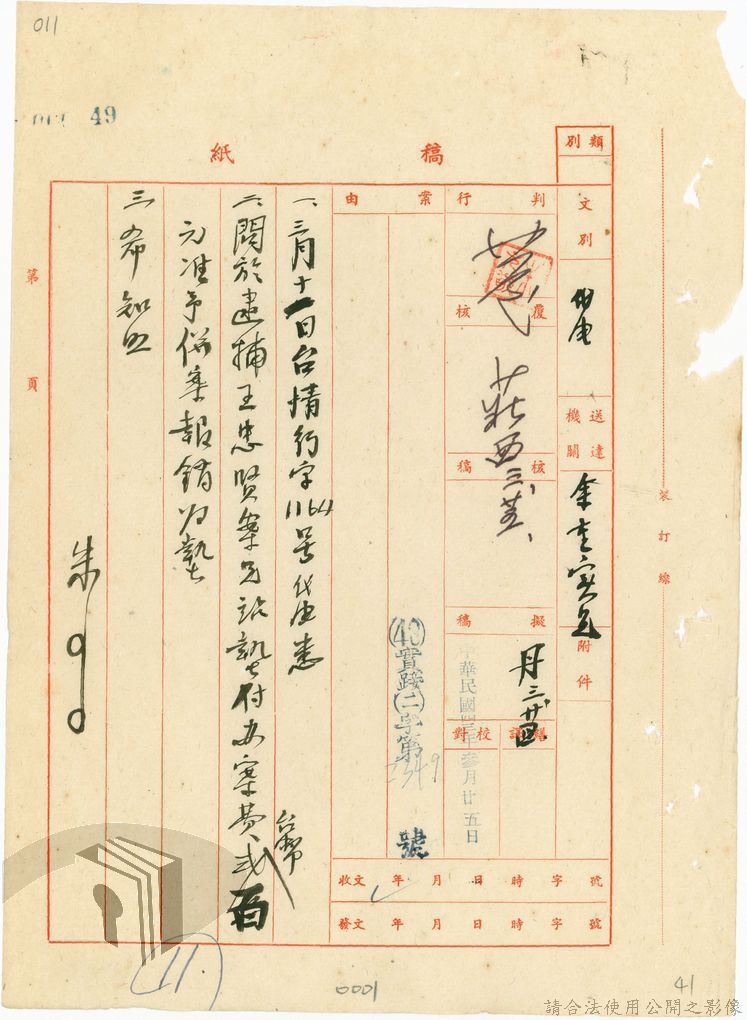 011
49
稿紙
類別
文別
代電
送達機關
附件
判行
覆核
核稿
莊西三、
擬稿
三、廿四
繕謄
校對
中華民國四三年叁月廿五日
案由
(43)實踐(二)字第2349號
收文 年 月 日 時 字 號
發文 年 月 日 時 字 號
一、三月十一日台情行字1164号代電悉
二、關於逮捕王忠賢案兄站墊付办案費台幣弍百
元准予併案報銷归墊
三、希知照
朱
第 頁
裝訂線
(11)
0001
41
請合法使用公開之影像